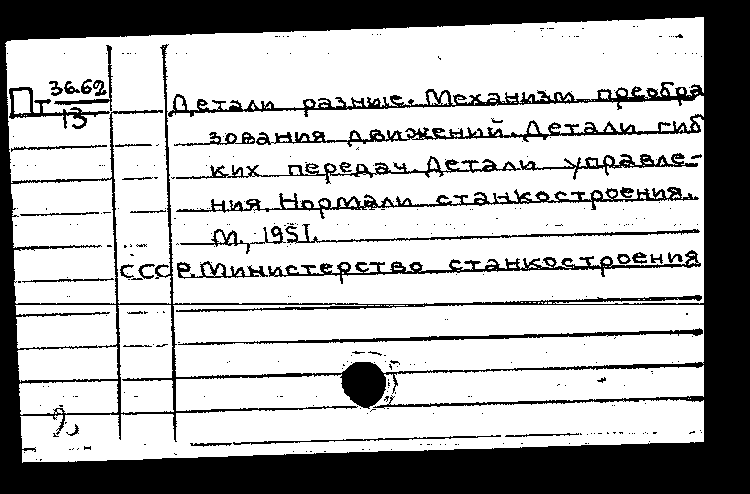 Пт 36.62
13
Детали разные. Механизм преобра
зования движений. Детали гиб
ких передач. Детали управле-
ния. Нормали станкостроения.
М., 1951.
СССР. Министерство станкостроения
2